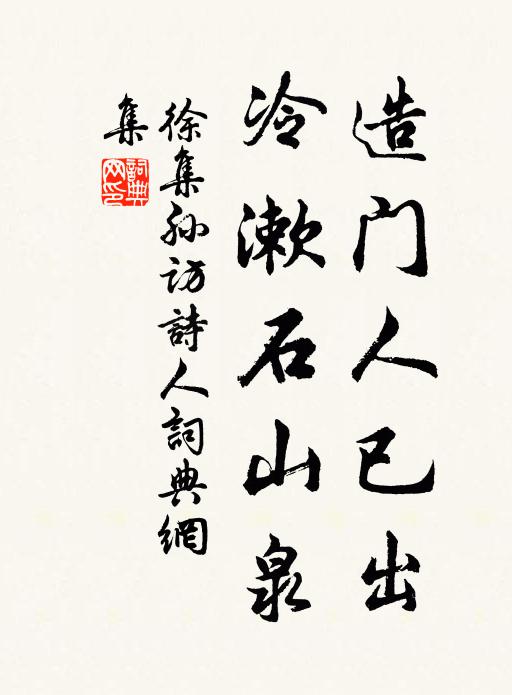 造门人已出
冷漱石山泉
徐集孙访詩人詞典網
集
詞典
网印